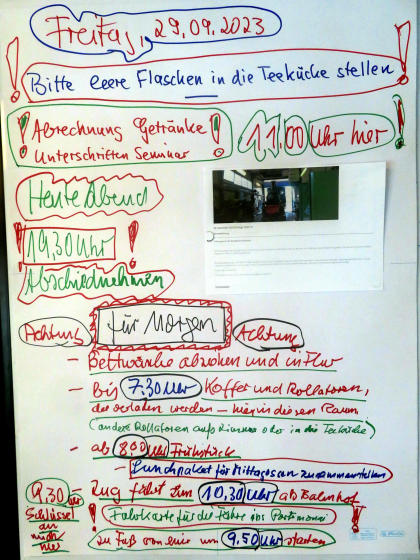 Freitag, 29.09.2023
Bitte leere Flaschen in die Teeküche stellen
Abrechnung Getränke
Unterschriften Seminar
11.00 Uhr hier
Heute Abend
19,30 Uhr
Abschiednehmen
Achtung für Morgen Achtung
- Bettwäsche abziehen und in Flur
- Bis 7.30 Uhr Koffer und Rollatoren,
die verladen werden - hier in diesen Raum
(andere Rollatoren aufs Zimmer oder in die Teeküche)
- ab 8.00 Uhr Frühstück
- Lunchpaket für Mittagessen zusammenstellen
9.30 Uhr
Schlüssel
an
mich
- Zug fährt um 10,30 Uhr ab Bahnhof
! Fahrkarte für die Fähre ins Portmonee !
zu Fuß von hier um 9.50 Uhr starten